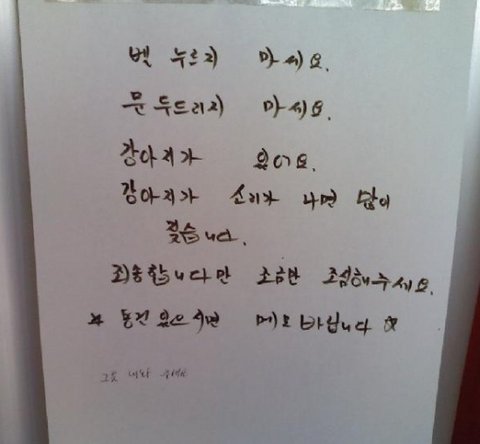 벨 누르지 마세요.
문 두드리지 마세요.
강아지가 있어요.
강아지가 소리가 나면 많이
짖습니다.
죄송합니다만 조금만 조심해주세요.
* 용건 있으시면 메모 바랍니다 *